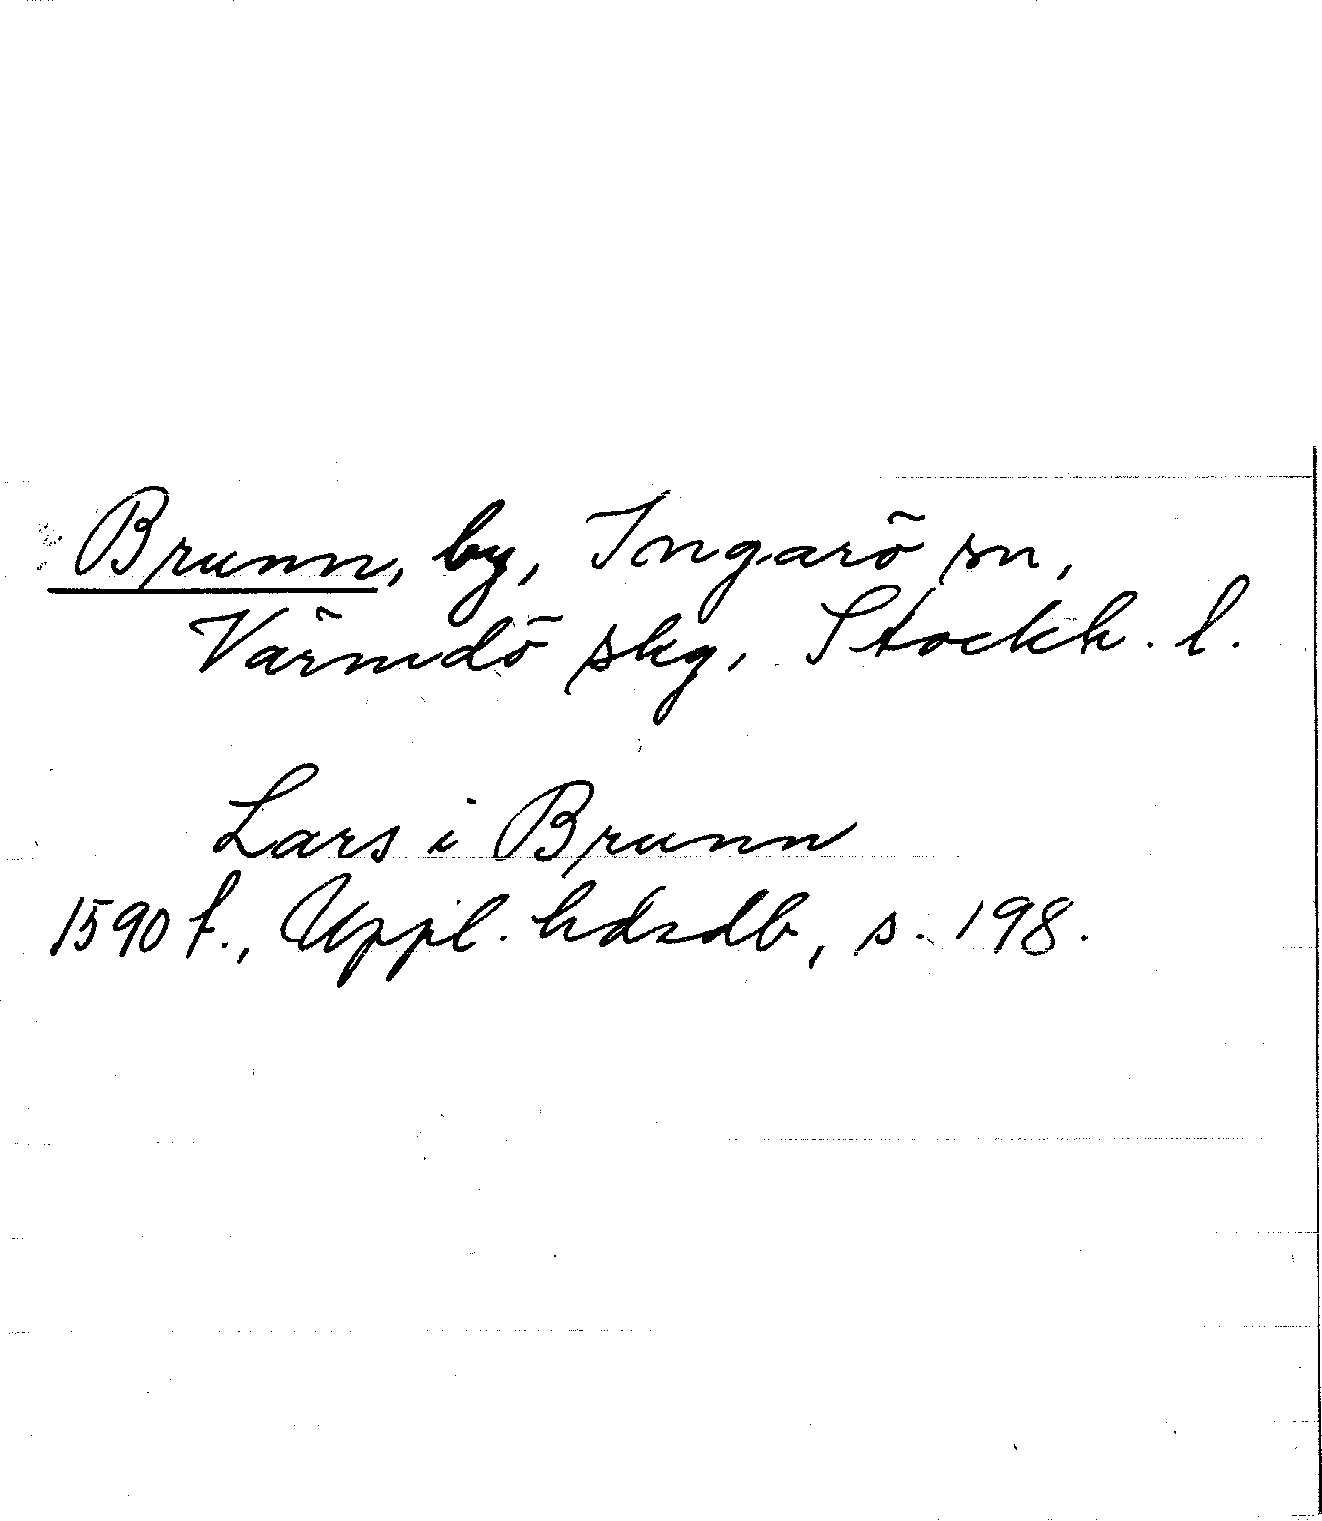 Brunn, by, Ingarö sn,
Värmdö skg, Stockh. l.
Lars i Brunn
1590 f., Uppl. hdsdb, s. 198.